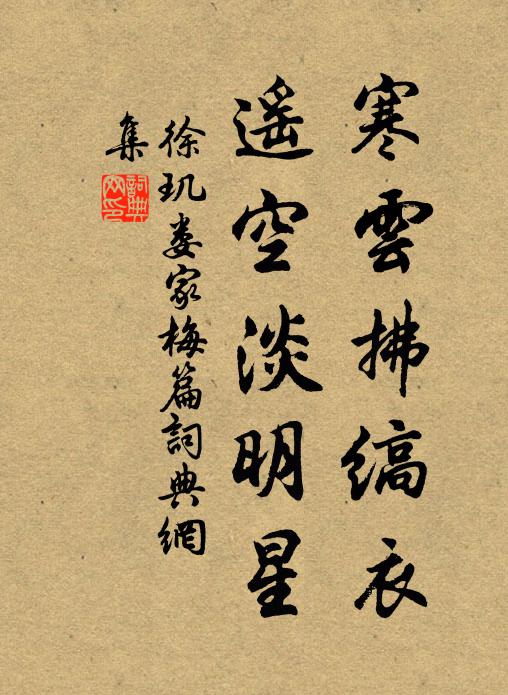 寒雲拂縞衣
遥空淡明星
徐玑娄家梅篇詞典網
集
詞典網印